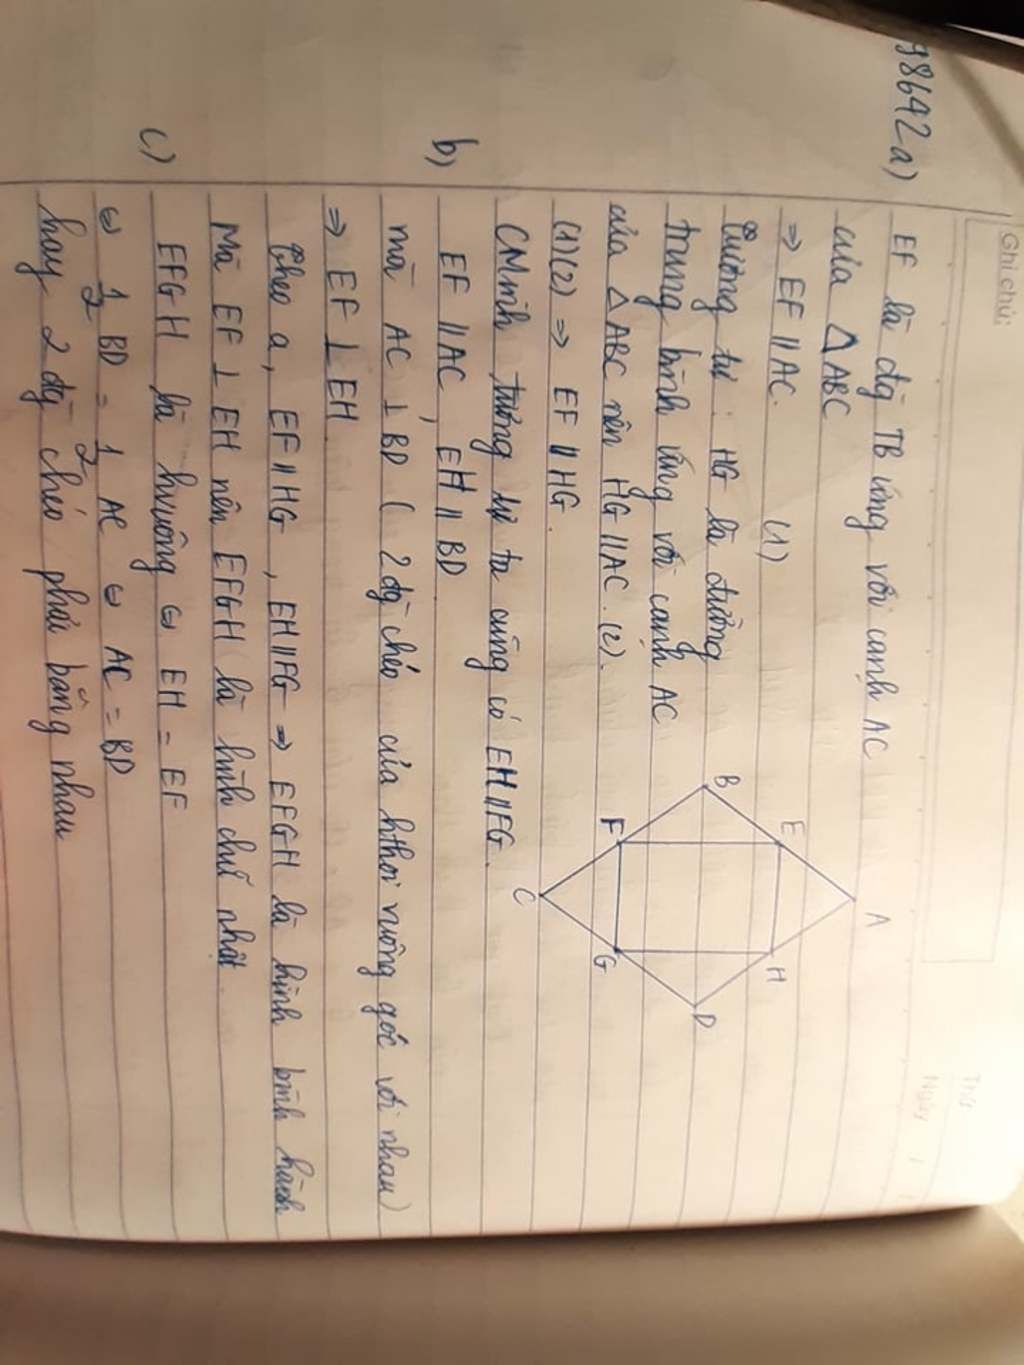 Ghi chú:
Thứ
Ngày
98642 a) EF là đg TB ứng với cạnh AC
của △ABC
⇒ EF ∥ AC. (1)
Tương tự: HG là đường
trung bình ứng với cạnh AC
của △ABC nên HG ∥ AC. (2).
(1)(2) ⇒ EF ∥ HG.
CMinh tương tự ta cũng có EH ∥ FG.
b) EF ∥ AC, EH ∥ BD
mà AC ⊥ BD (2 đg chéo của hthoi vuông góc với nhau)
⇒ EF ⊥ EH
Theo a, EF ∥ HG, EH ∥ FG ⇒ EFGH là hình bình hành
Mà EF ⊥ EH nên EFGH là hình chữ nhật.
c) EFGH là hvuông ⇔ EH = EF
⇔ 1/2 BD = 1/2 AC ⇔ AC = BD
hay 2 đg chéo phải bằng nhau
A
B
E
H
F
G
D
C